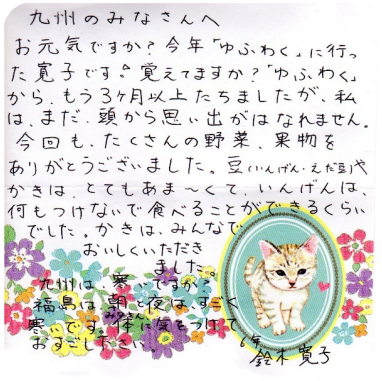 九州のみなさんへ
お元気ですか？今年「ゆふわく」に行っ
た寛子です。覚えてますか？「ゆふわく」
から、もう3ヶ月以上たちましたが、私
は、まだ、頭から思い出がはなれません。
今回も、たくさんの野菜、果物を
ありがとうございました。豆(いんげん・えだ豆)や
かきは、とてもあま〜くて、いんげんは、
何もつけないで食べることができるくらい
でした。かきは、みんなで
おいしくいただき
ました。
九州は、寒いですか？
福島は、朝と夜は、すごく
寒いです。体に気をつけて
おすごし下さい。
6年 鈴木 寛子